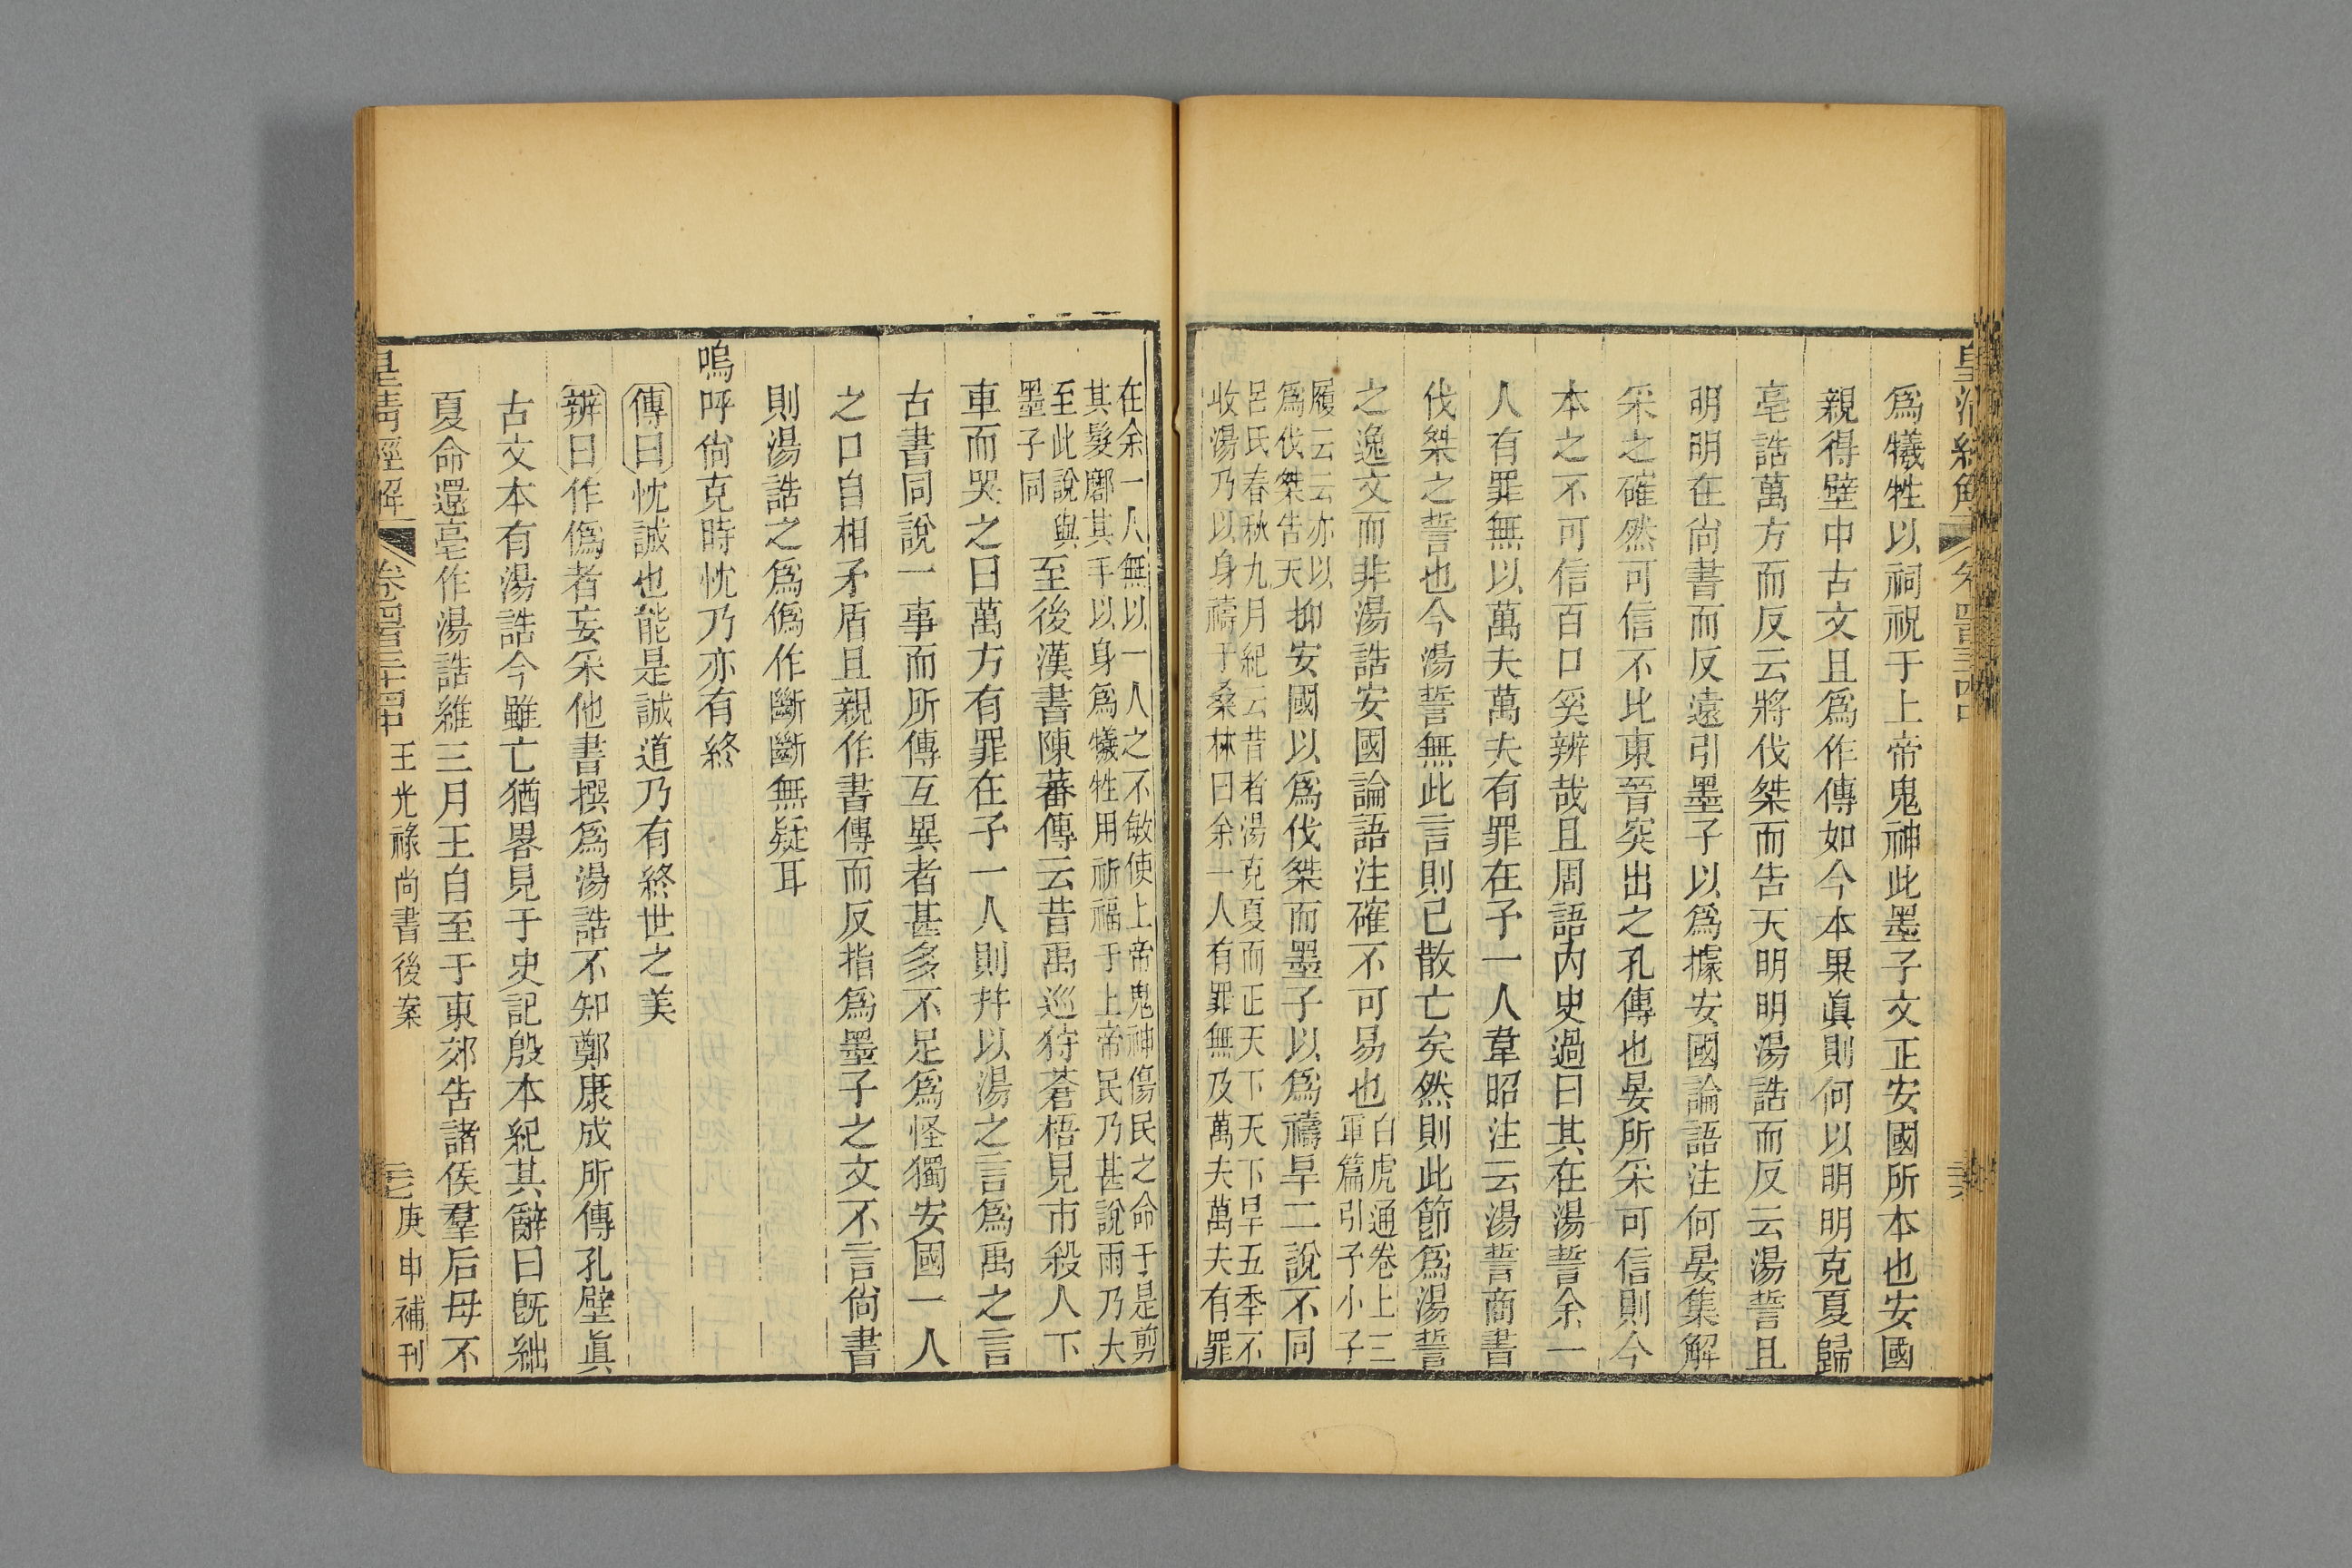 爲犧牲以祠祝于上帝鬼神此墨子文正安國所本也安國
親得壁中古文且爲作傳如今本果眞則何以明明克夏歸
亳誥萬方而反云將伐桀而告天明明湯誥而反云湯誓且
明明在尙書而反遠引墨子以爲據安國論語注何晏集解
采之確然可信不比東晉突出之孔傳也晏所采可信則今
本之不可信百口奚辨哉且周語內史過曰其在湯誓余一
人有罪無以萬夫萬夫有罪在予一人韋昭注云湯誓商書
伐桀之誓也今湯誓無此言則已散亡矣然則此節爲湯誓
之逸文而非湯誥安國論語注確不可易也白虎通卷上三
軍篇引予小子
履云云亦以
爲伐桀告天抑安國以爲伐桀而墨子以爲禱旱二說不同
呂氏春秋九月紀云昔者湯克夏而正天下天下旱五秊不
收湯乃以身禱于桑林曰余一人有罪無及萬夫萬夫有罪
在余一人無以一人之不敏使上帝鬼神傷民之命于是剪
其髮鄜其手以身爲犧牲用祈福于上帝民乃甚說雨乃大
至此說與
墨子同至後漢書陳蕃傳云昔禹巡狩蒼梧見市殺人下
車而哭之曰萬方有罪在予一人則幷以湯之言爲禹之言
古書同說一事而所傳互異者甚多不足爲怪獨安國一人
之口自相矛盾且親作書傳而反指爲墨子之文不言尙書
則湯誥之爲僞作斷斷無疑耳
嗚呼尙克時忱乃亦有終
傳曰忱誠也能是誠道乃有終世之美
辨曰作僞者妄采他書撰爲湯誥不知鄭康成所傳孔壁眞
古文本有湯誥今雖亡猶畧見于史記殷本紀其辭曰旣絀
夏命還亳作湯誥維三月王自至于東郊告諸侯羣后毋不
皇清經解
卷四百三十四中
王光祿尚書後案
庚申補刊